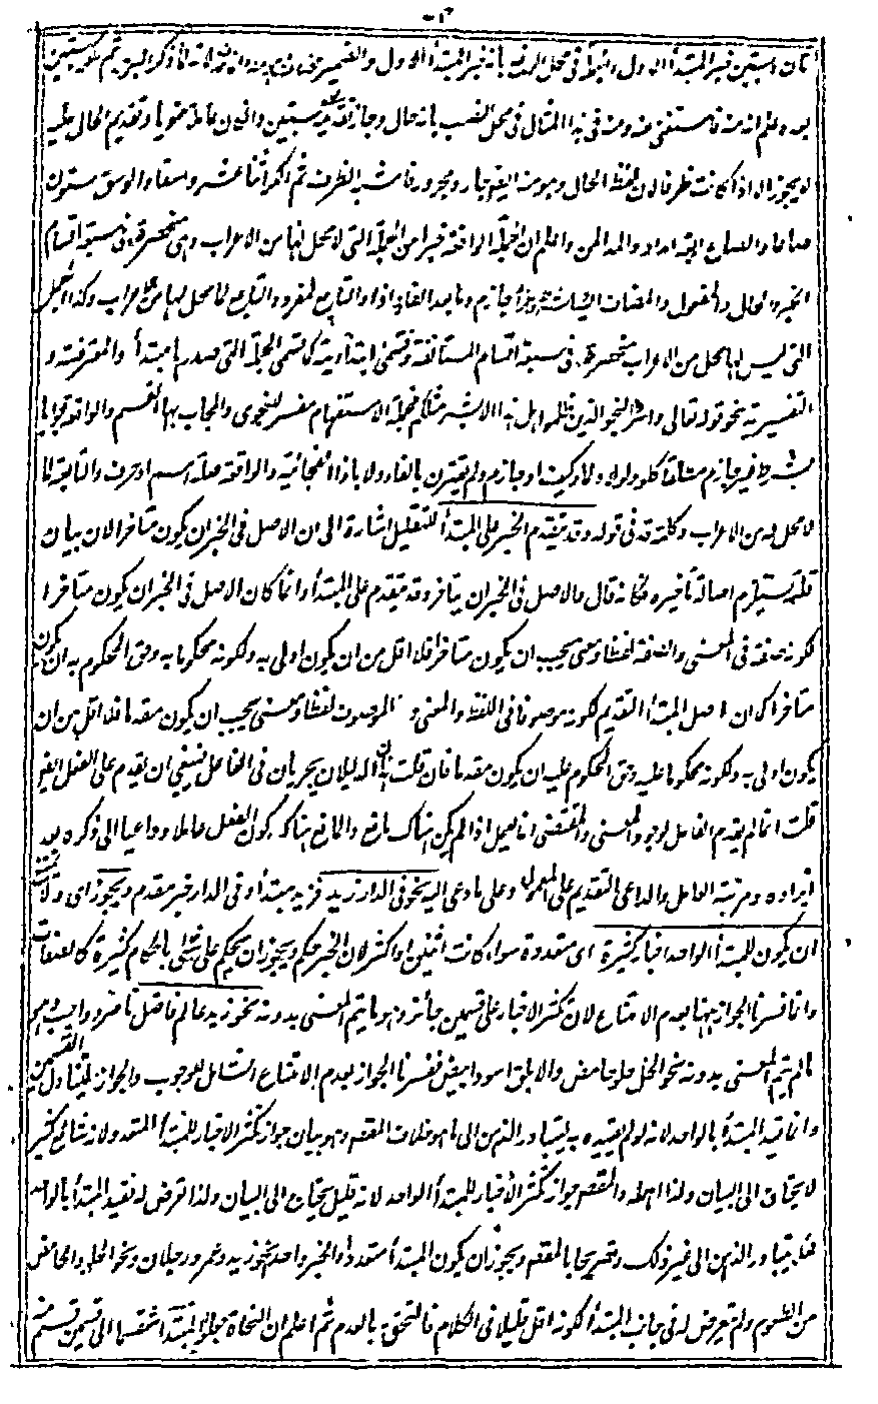 ثان بستين خبر المبتدأ الاول وايضا في محل الرفع بانه خبر المبتدأ الاول والضمير
بوجه واعلم انه منه مستغنى عنه ومنه في هذا المثال في محل النصب بانه حال وجاز تقديره بستين والحال ان عاملا معنويا وتقديم الحال عليه
لا يجوز الا اذا كانت ظرفا لان لفظ الحال وهو منه ايضا جار ومجرور فاشبه الظرف ثم الكر اثنا عشر وسقا والوسق ستون
صاعا والصاع اربعة امداد والمد المن واعلم ان الجملة الواقعة خبرا من الجملة التي لها محل من الاعراب وهى منحصرة في سبعة اقسام
الخبر والحال والمفعول والمضاف اليها وجزاء جازم وما بعد الفاء او اذا والتابع لمفرد والتابع لما محل لها من الاعراب وكذا الجمل
التي ليس لها محل من الاعراب منحصرة في سبعة اقسام المستانفة وتسمى ابتدائية كما تسمى الجملة التي صدرها مبتدأ والمعترضة و
التفسيرية نحو قوله تعالى واسروا النجوى الذين ظلموا هل هذا الا بشر مثلكم فجملة الاستفهام مفسر للنجوى والمجاب بها القسم والواقعة جوابا
بشرط غير جازم مطلقا كلو ولولا ولما وكيف او جازم ولم يقترن بالفاء ولا باذا الفجائية والواقعة صلة اسم او حرف والتابعة لما
لا محل له من الاعراب وكلمة قد في قوله وقد يتقدم الخبر على المبتدأ للتقليل اشارة الى ان الاصل في الخبر ان يكون متأخرا لان بيان
قلته يستلزم اصالة تأخيره فكانه قال والاصل في الخبر ان يتأخر وقد يتقدم على المبتدأ وانما كان الاصل في الخبر ان يكون متأخرا
لكونه صفة في المعنى والصفة لفظا ومعنى يجب ان يكون متأخرا فلا اقل من ان يكون اولى به ولكونه محكوما به وحق المحكوم به ان يكون
متأخرا كما ان اصل المبتدأ التقديم لكونه موصوفا في اللفظ والمعنى و الموصوف لفظا ومعنى يجب ان يكون مقدما فلا اقل من ان
يكون اولى به ولكونه محكوما عليه وحق المحكوم عليه ان يكون مقدما فان قلت هذان الدليلان يجريان في الفاعل فينبغي ان يقدم على الفعل ايضا
قلت انما لم يقدم الفاعل لوجود المعنى والمقتضى انما يعمل اذا لم يكن هناك مانع والمانع هناك كون الفعل عاملا وداعيا الى ذكره بعد
ايراده ومرتبة العامل والداعى التقديم على المعمول وعلى مادعى اليه نحو في الدار زيد فزيد مبتدأ وفي الدار خبر مقدم ويجوز اى ولا يمتنع
ان يكون للمبتدأ الواحد اخبار كثيرة اى متعددة سواء كانت اثنين او اكثر لان الخبر حكم ويجوز ان يحكم على شئ باحكام كثيرة كالصفات
وانما فسرنا الجواز ههنا بعدم الامتناع لان تكثر الاخبار على قسمين جائز وهو ما يتم المعنى بدونه نحو زيد عالم فاضل ناصر وواجب وهو
ما لم يتم المعنى بدونه نحو الخل حلو حامض والابلق اسود ابيض ففسرنا الجواز بعدم الامتناع الشامل للوجوب والجواز ليتناول القسمين
وانما قيد المبتدأ بالواحد لانه لو لم يقيده به ليتبادر الذهن الى ما هو خلاف المقصود وهو بيان جواز تكثر الاخبار للمبتدأ المتعدد لانه شائع كثير
لا يحتاج الى البيان ولذا اهمله والمقصود جواز تكثر الأخبار للمبتدأ الواحد لانه قليل يحتاج الى البيان ولذا تعرض له بقيد المبتدأ بالواحد
فلا يتبادر الذهن الى غير ذلك وتصريحا بالمقصود ويجوز ان يكون المبتدأ متعددا والخبر واحد نحو زيد وعمرو رجلان ونحو الحلو والحامض
من الطعوم ولم يتعرض له في جانب المبتدأ لكونه اقل قليلا في الكلام فالتحق بالعدم ثم اعلم ان النحاة جعلوا المبتدأ منقسما الى قسمين قسم منه